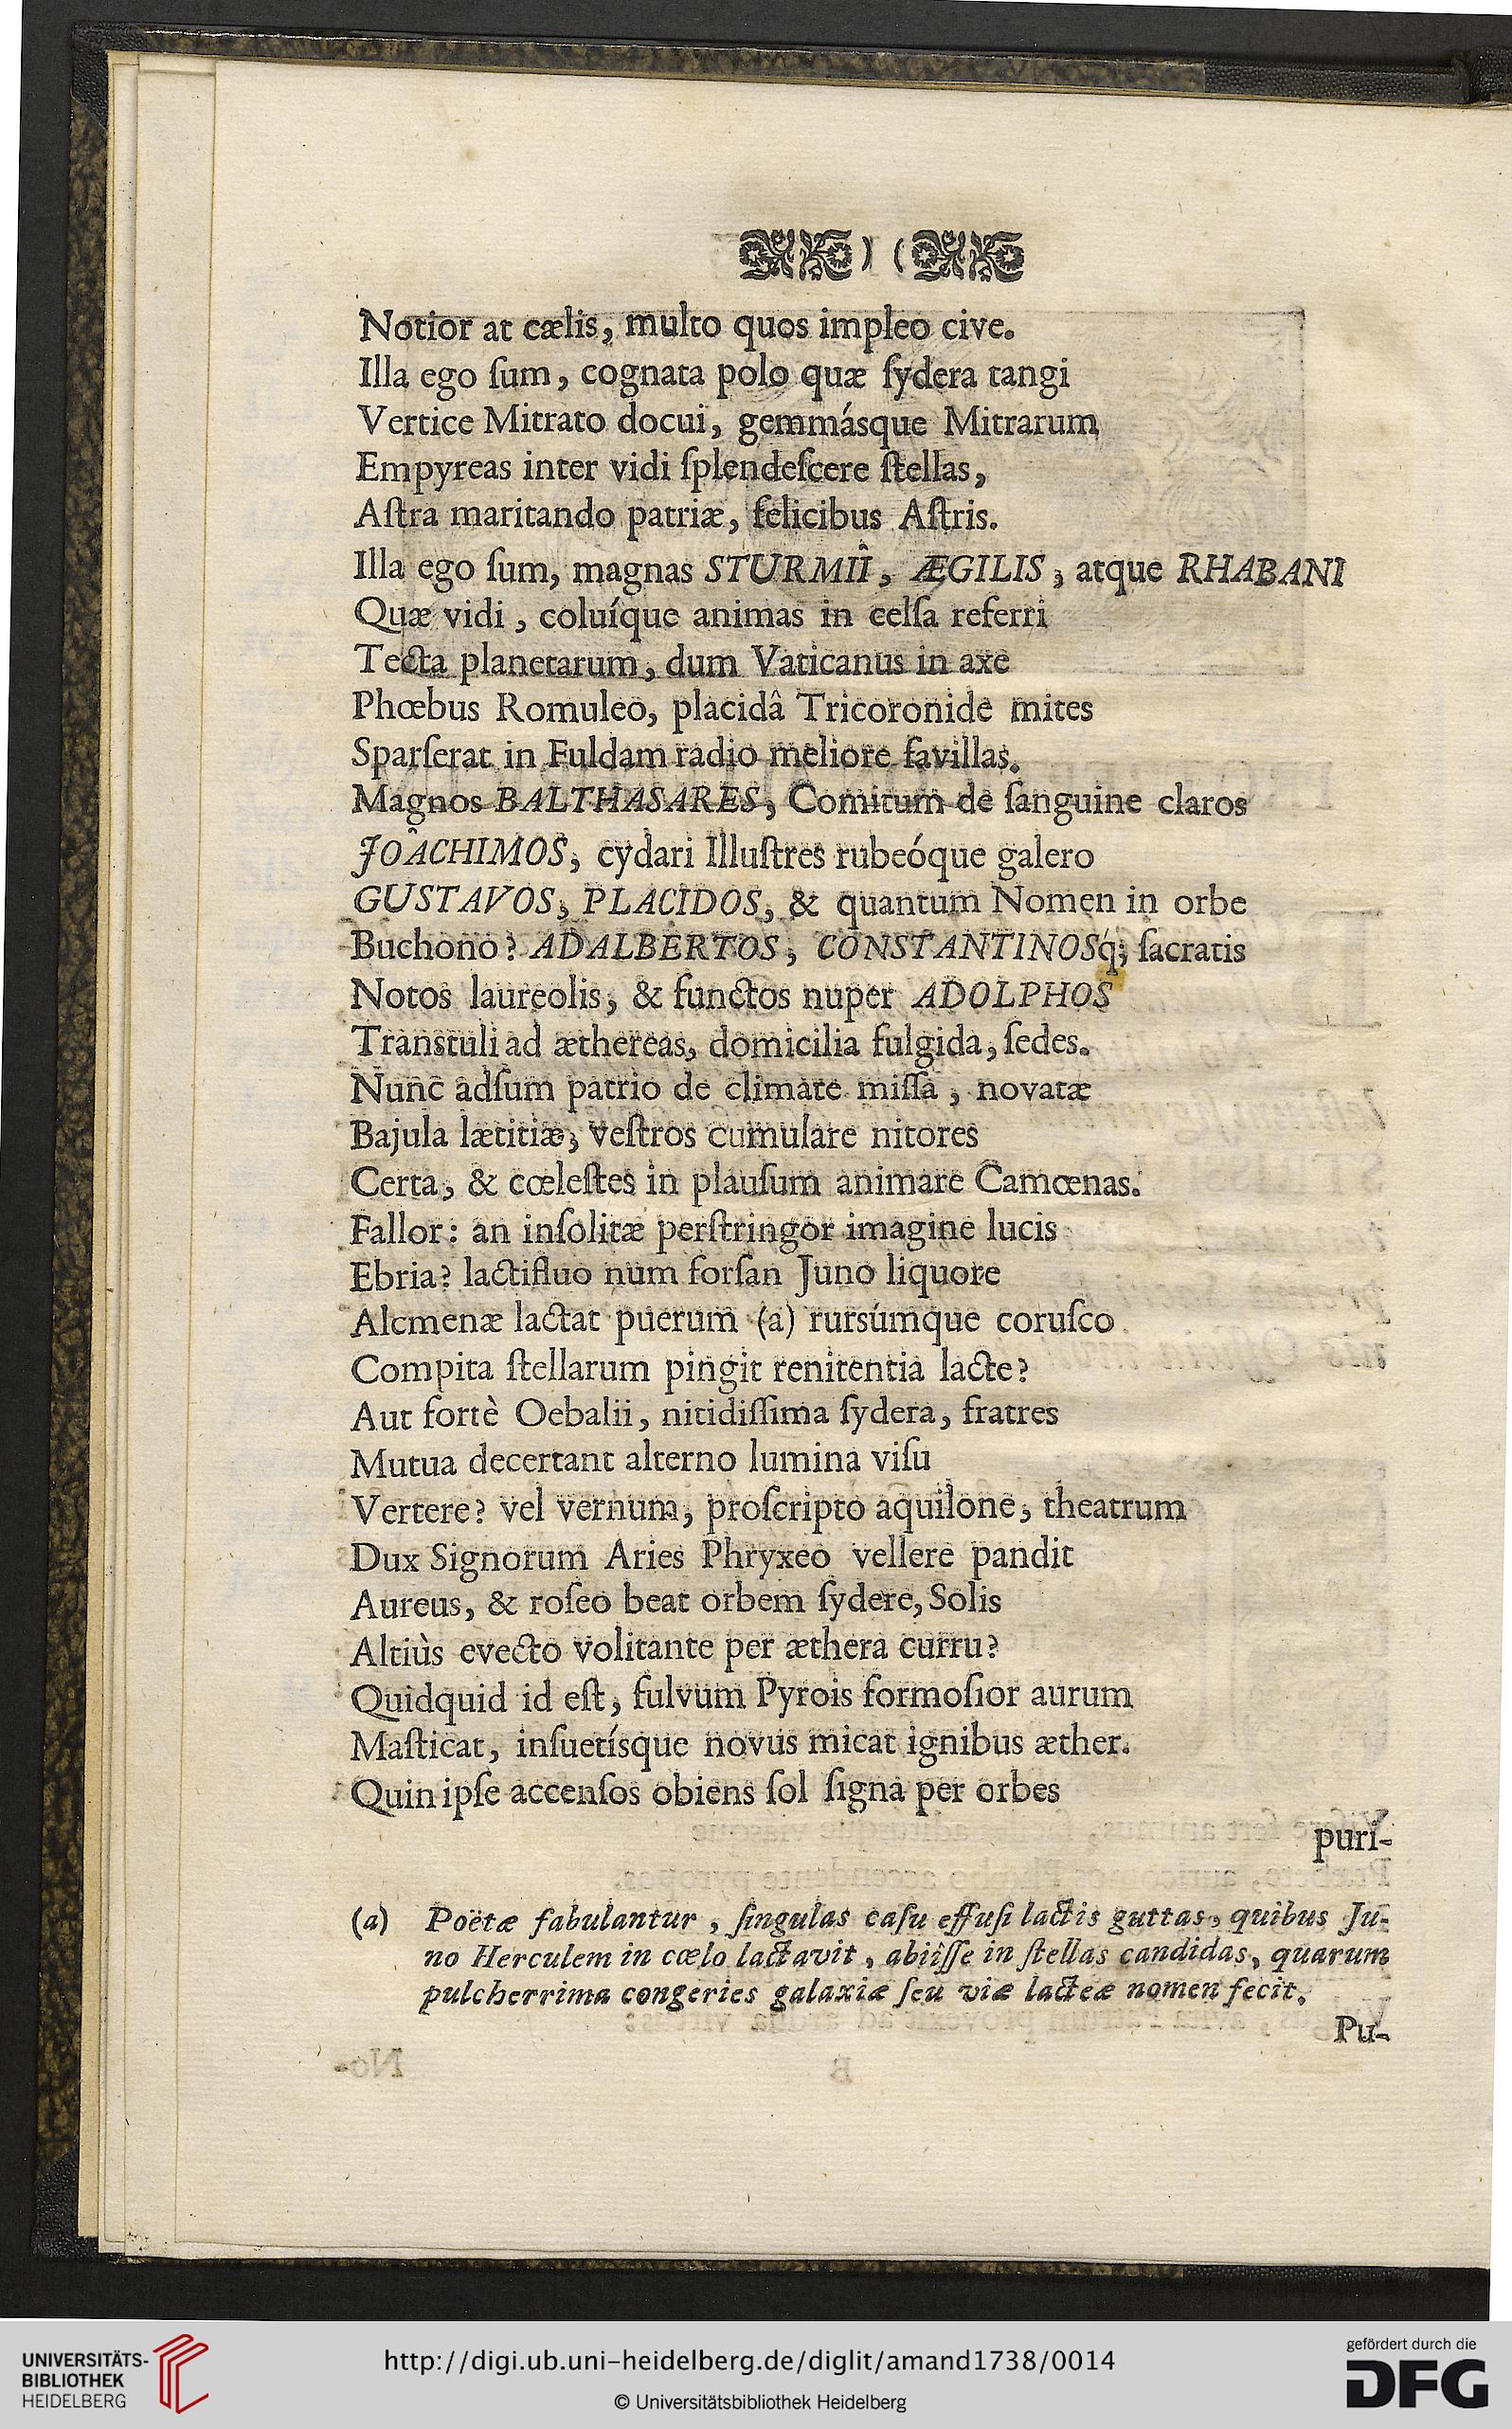 ) (
Notior at cælis, multo quos impleo cive.
Illa ego ſum, cognata polo quæ ſydera tangi
Vertice Mitrato docui, gemmásque Mitrarum
Empyreas inter vidi ſplendeſcere ſtellas,
Aſtra maritando patriæ, felicibus Aſtris.
Illa ego ſum, magnas STURMIÎ, ÆGILIS, atque RHABANI
Quæ vidi, coluíque animas in celſa referri
Tecta planetarum, dum Vaticanus in axe
Phœbus Romuleo, placidâ Tricoronide mites
Sparſerat in Fuldam radio meliore favillas.
Magnos BALTHASARES, Comitum de ſanguine claros
JOÂCHIMOS, cydari Illuſtres rubeóque galero
GUSTAVOS, PLACIDOS, & quantum Nomen in orbe
Buchono? ADALBERTOS, CONSTANTINOSq́; ſacratis
Notos laureolis, & functos nuper ADOLPHOS
Transtuli ad æthereas, domicilia fulgida, ſedes.
Nunc adſum patrio de climate miſſa, novatæ
Bajula lætitiæ, veſtros cumulare nitores
Certa, & cœleſtes in plauſum animare Camœnas.
Fallor: an inſolitæ perſtringor imagine lucis
Ebria? lactifluo num forſan Juno liquore
Alcmenæ lactat puerum (a) rursúmque coruſco
Compita ſtellarum pingit renitentia lacte?
Aut fortè Oebalii, nitidiſſima ſydera, fratres
Mutua decertant alterno lumina viſu
Vertere? vel vernum, proſcripto aquilone, theatrum
Dux Signorum Aries Phryxeo vellere pandit
Aureus, & roſeo beat orbem ſydere, Solis
Altiùs evecto volitante per æthera curru?
Quidquid id eſt, fulvum Pyrois formoſior aurum
Maſticat, inſuetísque novus micat ignibus æther.
Quin ipſe accenſos obiens ſol ſigna per orbes
puri-
(a) Poëtæ fabulantur, ſingulas caſu effuſi lactis guttas, quibus Ju-
no Herculem in cœlo lactavit, abiiſſe in ſtellas candidas, quarum
pulcherrima congeries galaxiæ ſeu viæ lacteæ nomen fecit.
Pu-
UNIVERSITÄTS-
BIBLIOTHEK
HEIDELBERG
http://digi.ub.uni-heidelberg.de/diglit/amand1738/0014
© Universitätsbibliothek Heidelberg
gefördert durch die
DFG